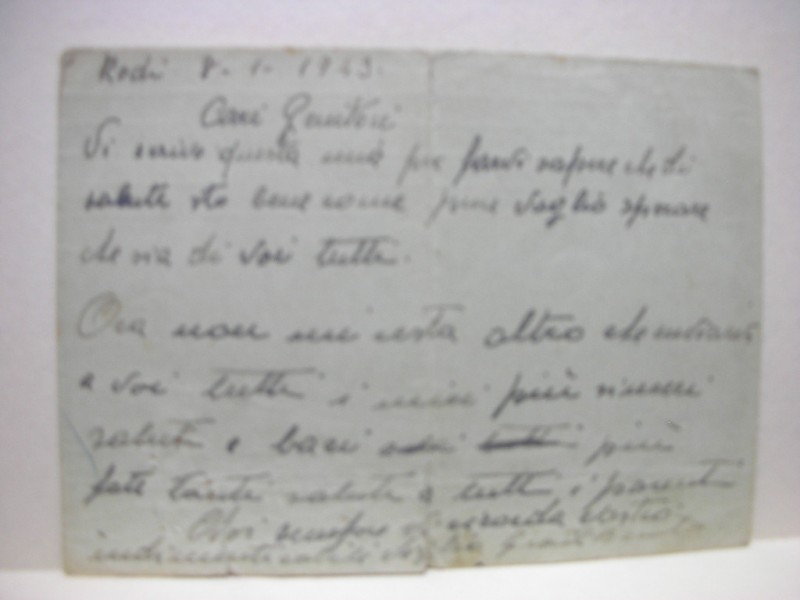 Rodi 8-1-1943.
Cari Genitori
Vi scrivo questa mia per farvi sapere che di
salute sto bene come pure voglio sperare
che sia di voi tutti.
Ora non mi resta altro che inviarvi
a voi tutti i miei più sinceri
saluti e baci più
fate tanti saluti a tutti i parenti
sempre vi ricorda vostro